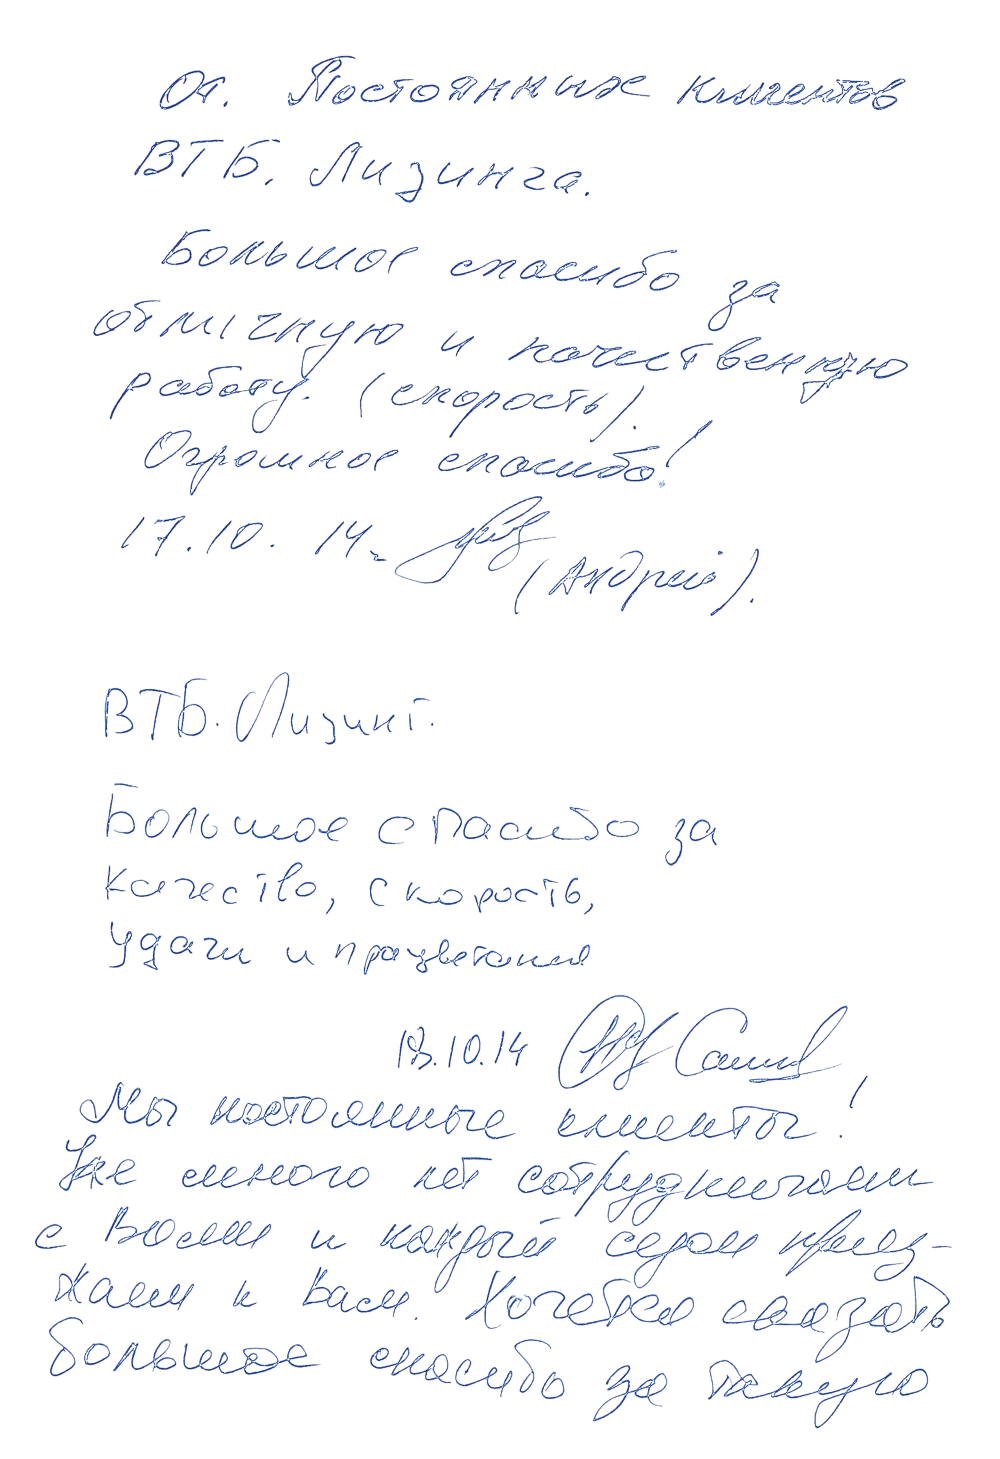 От. Постоянных клиентов
ВТБ. Лизинга.
Большое спасибо за
отличную и качественную
работу. (скорость).
Огромное спасибо!
17.10.14г.
(Андрей).
ВТБ. Лизинг.
Большое спасибо за
качество, скорость,
удачи и працветания
18.10.14
Мы постоянные клиенты!
Уже много лет сотрудничаем
с Вами и каждый сезон приез-
жаем к Вам. Хочется сказать
большое спасибо за такую